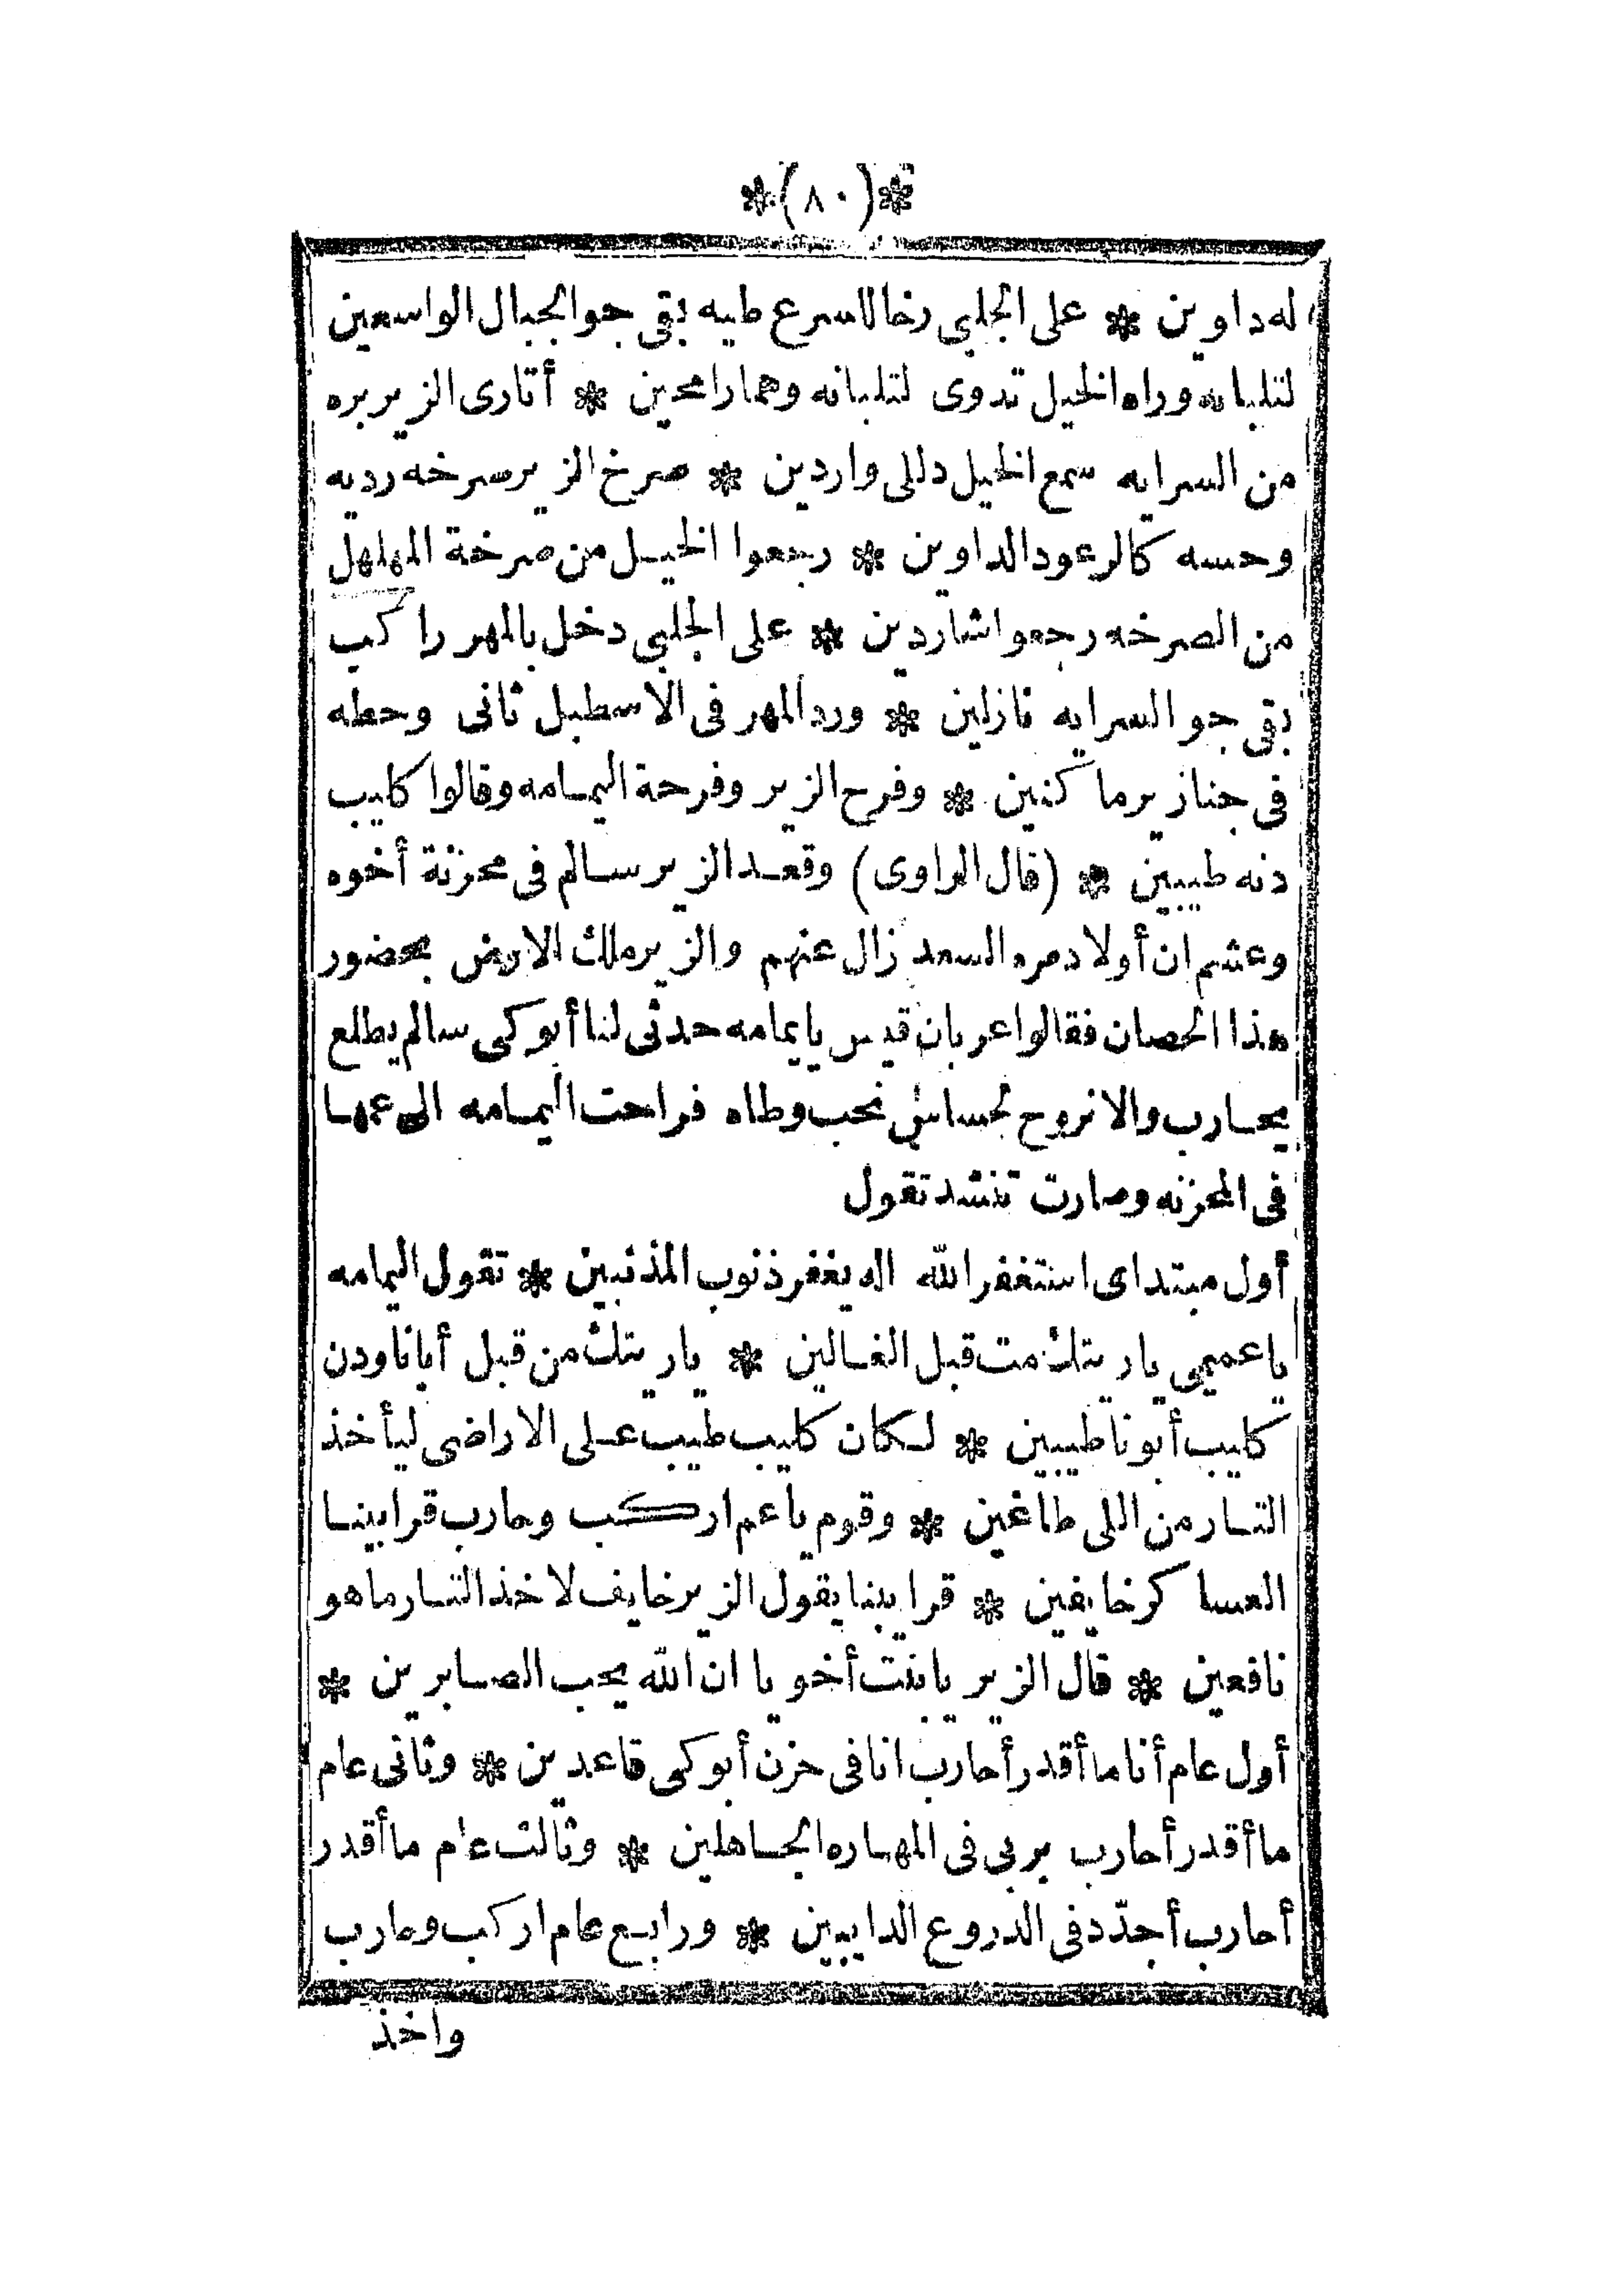 *(٨٠)*
له داوين * على الجلبى رخا لاسرع طيه بقى جوالجبال الواسعين
لتلبانه وراه الخيل تدوى لتلبانه وهما رامحين * أتارى الزير بره
من السرايه سمع الخيل دللى واردين * صرخ الزير صرخه رديه
وحسه كالرعود الداوين * رجعوا الخيل من صرخة المهلهل
من الصرخه رجعوا شاردين * على الجلبى دخل بالمهر راكب
بقى جوالسرايه نازلين * ورد المهر فى الاسطبل ثانى وحطه
فى جنازير ماكنين * وفرح الزير وفرحة اليمامه وقالوا كليب
دنه طيبين * (قال الراوى) وقعد الزير سالم فى محزنة أخوه
وعشم ان أولاد مره السعد زال عنهم والزير ملك الارض بحضور
هذا الحصان فقالوا عربان قيس يا يمامه حدثى لنا أبوكى سالم يطلع
يحارب والا نروح لجساس نحب وطاه فراحت اليمامه الى عمها
فى المحزنه وصارت تنشد تقول
أول مبتداى استغفر الله اله يغفر ذنوب المذنبين * تقول اليمامه
يا عميمى ياريتك مت قبل الغالين * ياريتك من قبل أبانا ودن
كليب أبونا طيبين * لكان كليب طيب على الاراضى ليأخذ
التار من اللى طاغين * وقوم ياعم اركب وحارب قرايبنا
العساكر خايفين * قرايبنا يقول الزير خايف لاخذ التار ما هو
نافعين * قال الزير يا بنت أخويا ان الله يحب الصابرين *
أول عام أنا ما أقدر أحارب انا فى حزن أبوكى قاعدين * وثانى عام
ما أقدر أحارب يربى فى المهاره الجاهلين * وثالث عام ما أقدر
أحارب أجدّد فى الدروع الدايبين * ورابع عام اركب وحارب
واخذ